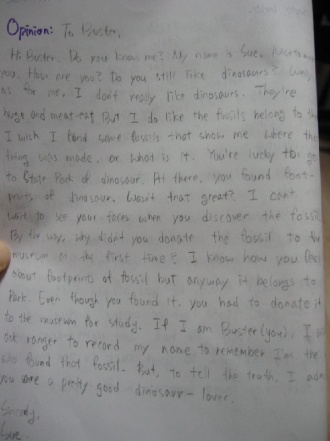 Opinion: To Buster,
Hi Buster. Do you know me? My name is Sue. Nice to meet
you. How are you? Do you still like dinosaurs?
as for me, I don't really like dinosaurs. They're
huge and meat-eat. But I do like the fossils belong to
I wish I found some fossils that show me where the
thing was made, or what is it. You're lucky to go
to State Park of dinosaur. At there, you found foot-
prints of dinosaur. Wasn't that great? I can't
wait to see your faces when you discover the fossil
By the way, why didn't you donate the fossil to the
museum at the first time? I know how you feel
about footprints of fossil but anyway it belongs to
Park. Even though you found it, you had to donate it
to the museum for study. If I am Buster(you), I
ask ranger to record my name to remember I'm the
who found that fossil. But, to tell the truth, I
you are a pretty good dinosaur-lover.
Sue.